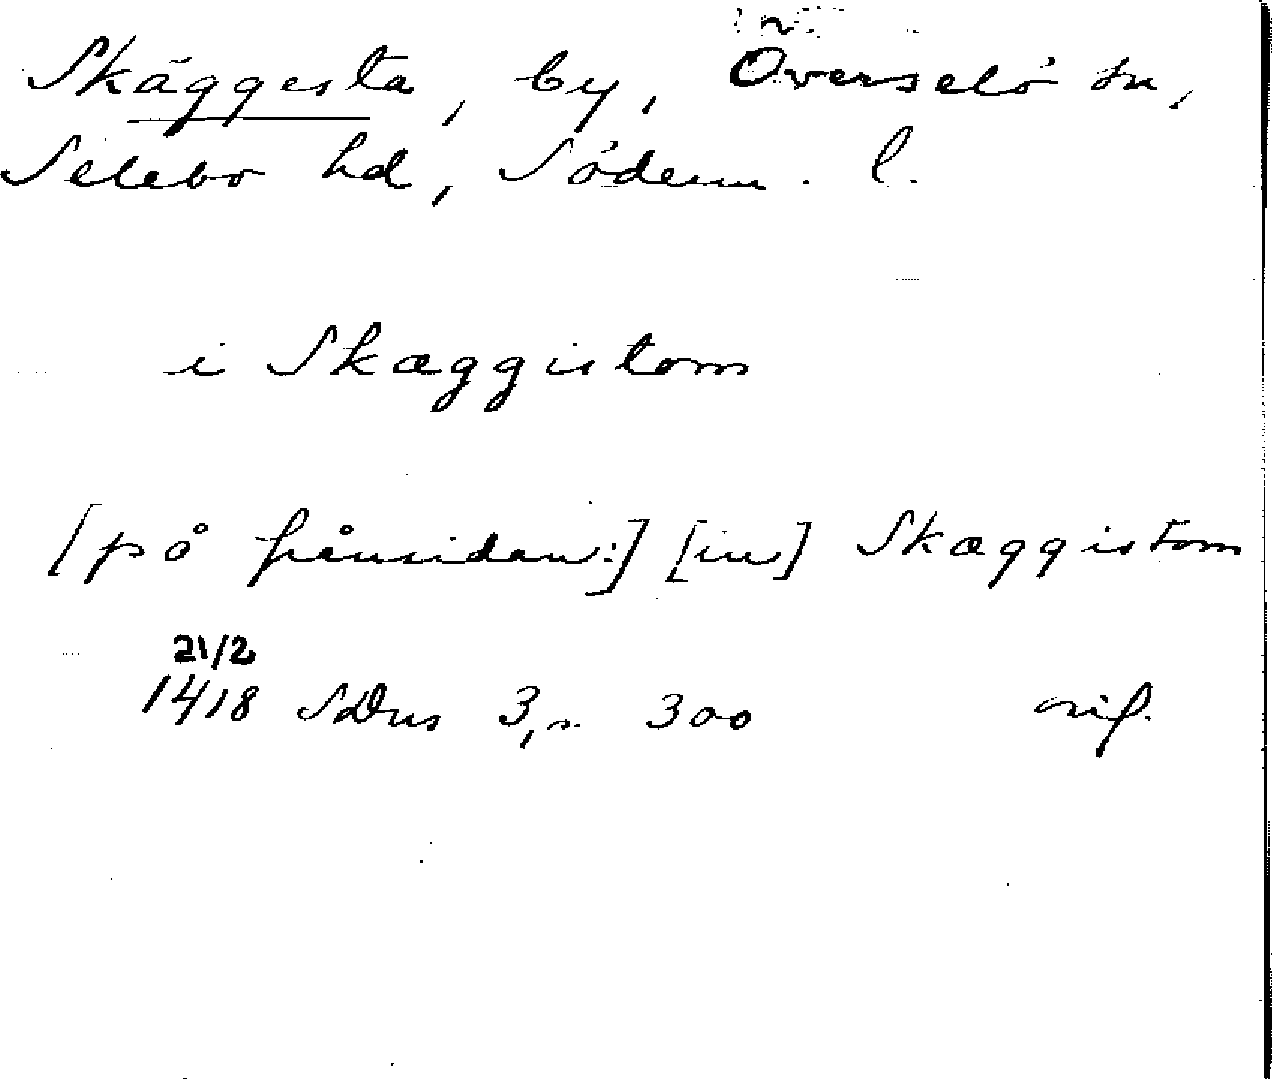 Skäggesta, by, Överselö sn,
Selebo hd, Söderm. l.
i Skæggistom
[på frånsidan:] [in] Skæggistom
21/2
1418 SDns 3, n. 300 orig.